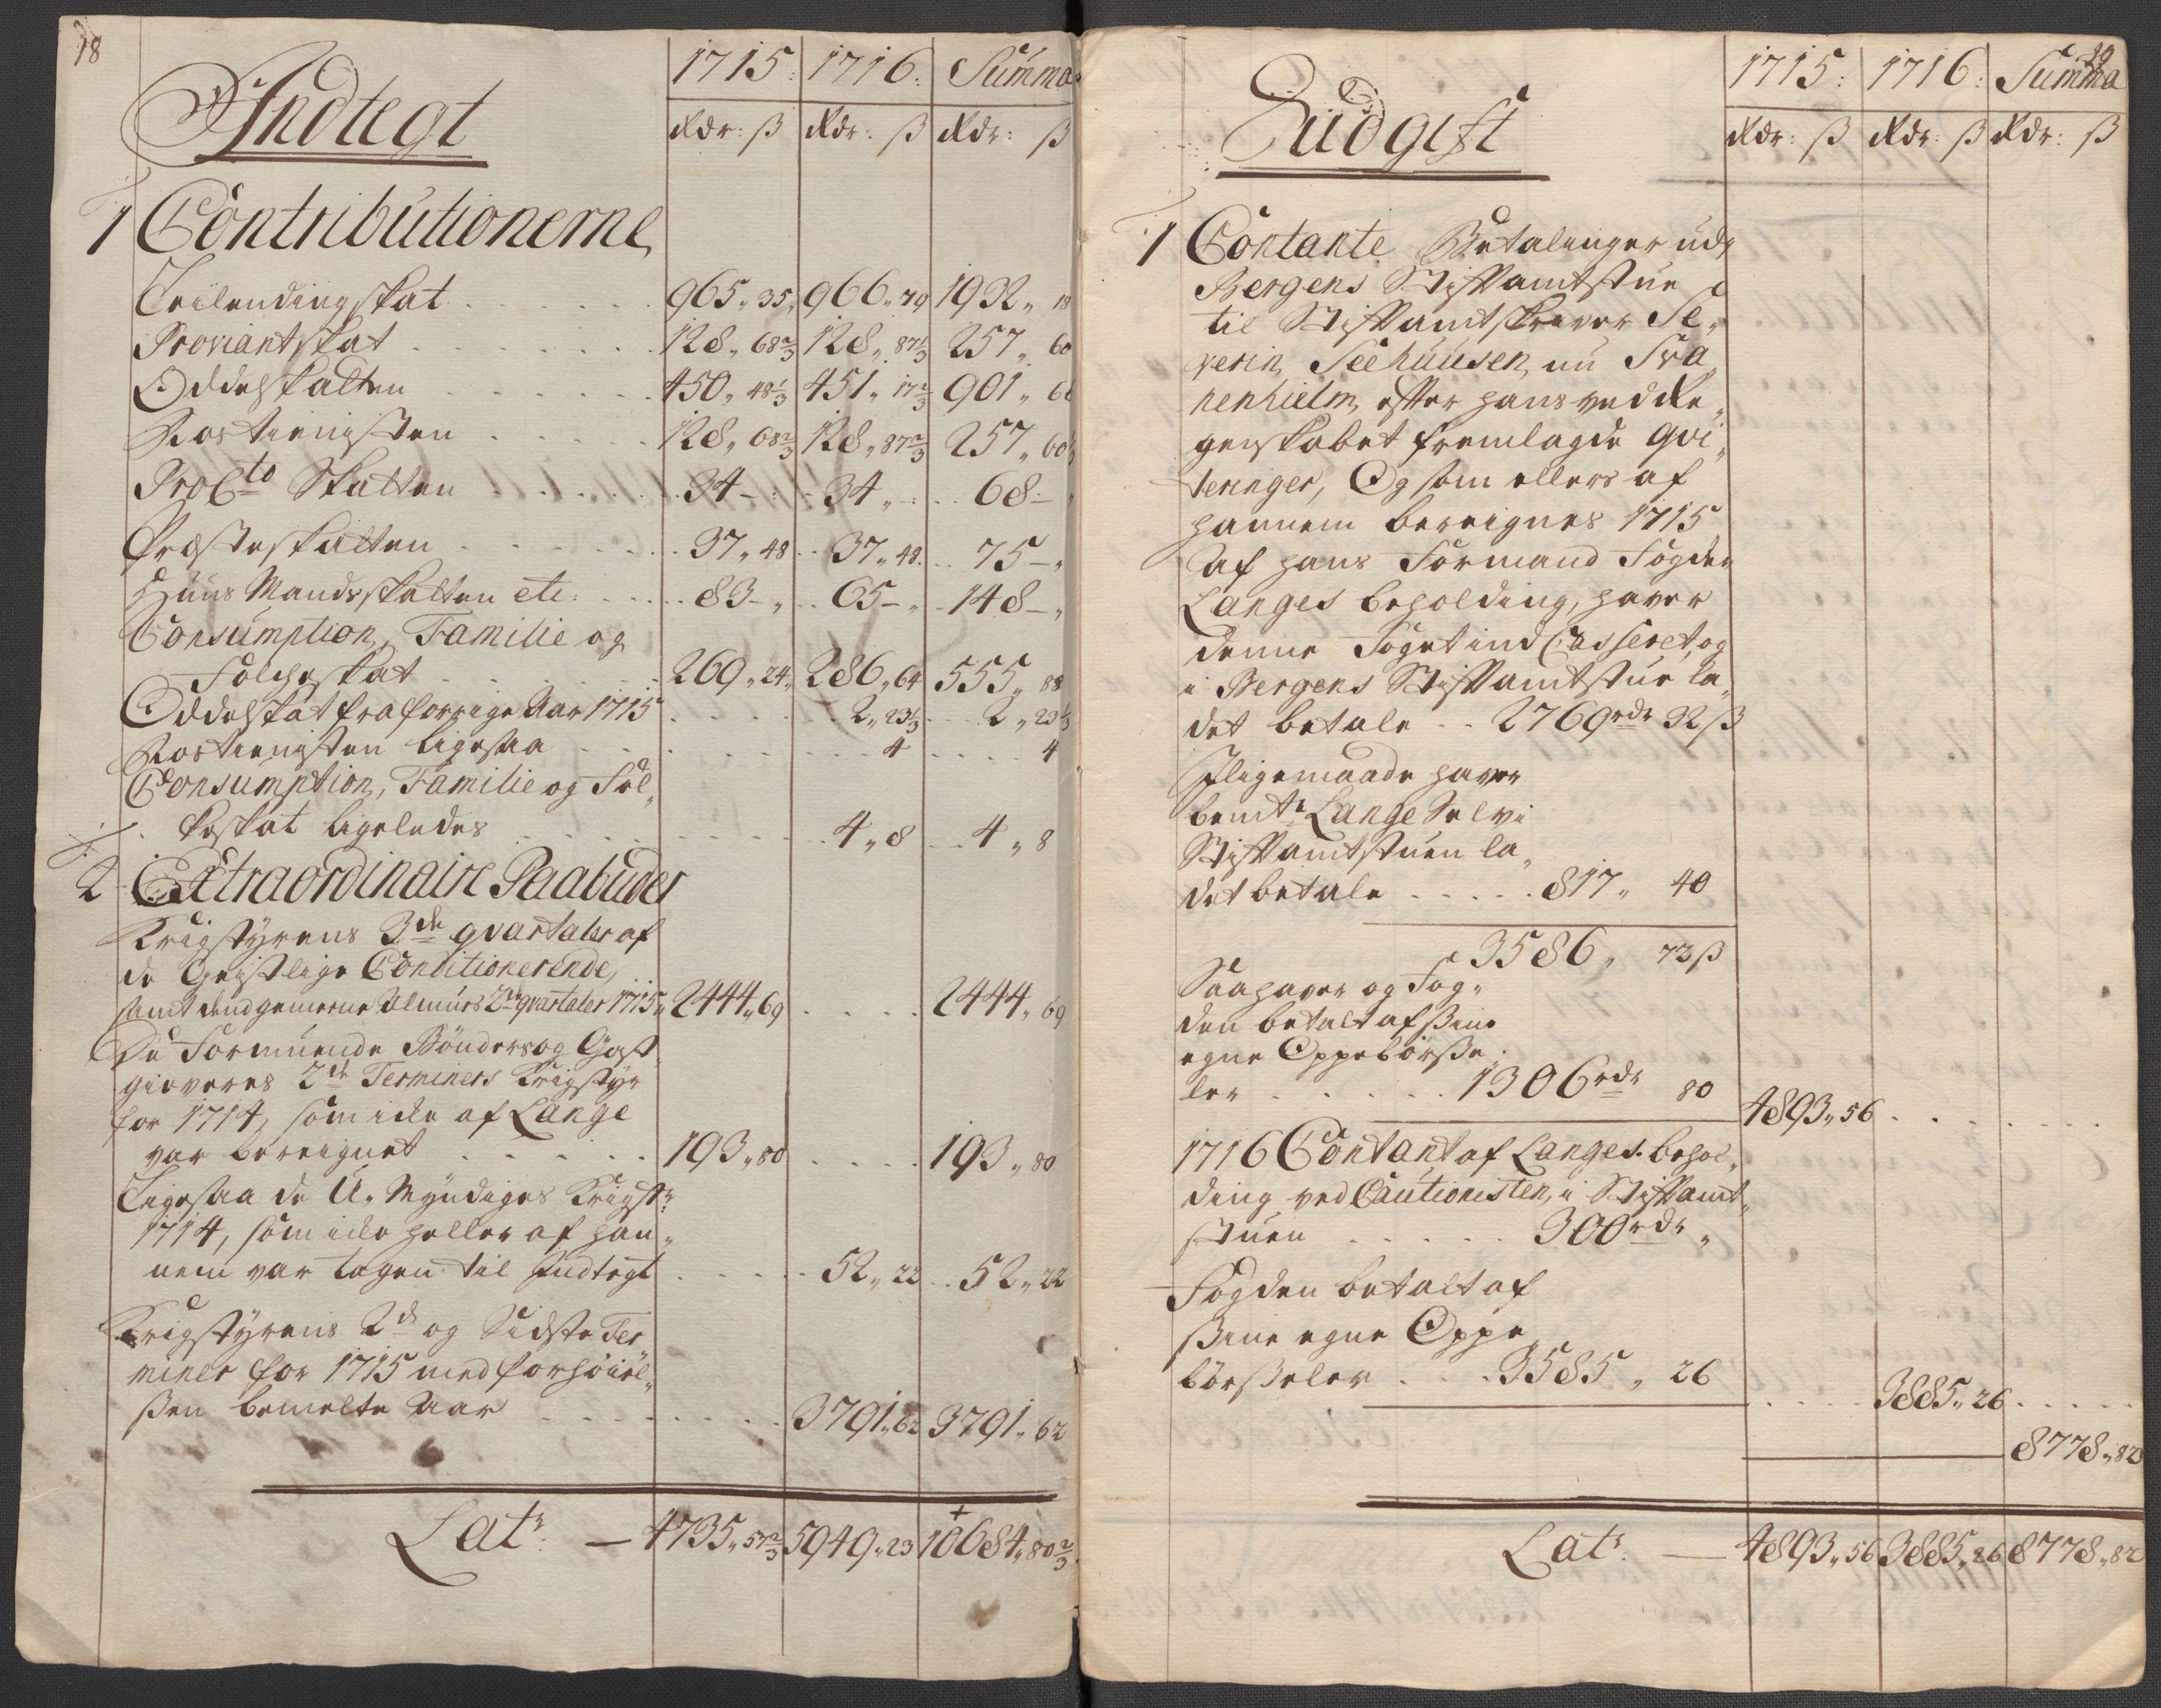 18
Indtegt
1715: 1716: Summa
Rdr: ß Rdr: ß Rdr: ß
1 Contributionerne
Leilendingskat . . . 965„35„ 966„79 1932„18
Proviantskat . . . 128„68⅔ 128„87⅓ 257„60
Oddelskatten . . . 450„48⅓ 451„17⅔ 901„66
Rostienisten . . . 128„68⅔ 128„87⅔ 257„60⅓
ProCto Skatten . . . 34–: 34„–: 68–
Præsteskatten . . . 37„48 37„48 75–„
Huus Mandsskatten etc: . . . 83–„ 65–„ 148–„
Consumption, Familie og
Folcheskat . . . 269„24„ 286„64 555„88
Oddelskat fra forrige Aar 1715 . . . 2„23⅓ 2„23⅓
Rostienisten ligesaa . . . 4 4
Consumption, Familie og Fol„
keskat ligeledes . . . 4„8 4„8
2 Extraordinaire Paabuder
Krigstyrens 3de qvartaler af
de Geistlige Conditionerende,
samt dend gemeene Almues 2de qvartaler 1715„ 2444„69 . . . 2444„69
De Formuende Bønders og Gast„
giveres 2de Terminers Krigstyr
for 1714, som icke af Lange
var bereignet . . . 193„80 . . . 193„80
Ligesaa de U. Myndiges Krigstr:
1714, som icke heller af han„
nem var tagen til Indtegt . . . 52„22 52„22
Krigstyrens 2de og Sidste Ter
miner for 1715 med forhøiel„
ßen bemelte Aar . . . 3791„62 3791„62
Latr: — 4735„57⅔ 5949„23 10684„80⅔
19
Uudgift
1715: 1716: Summa
Rdr: ß Rdr: ß Rdr: ß
1 Contante Betalinger udj
Bergens Stiftamtstue
til Stiftamtskriver Se„
verin Seehuusen, nu Sva„
nenhielm, efter hans ved Re„
genskabet fremlagde qvi„
teringer, Og som ellers af
hannem bereignes 1715
Af hans Formand Fogden
Langes beholding, haver
denne Foget ind Casseret, og
i Bergens Stiftamtstue la„
det betale . . 2769rdr 32ß
Iligemaade haver
bemte Lange Selv i
Stiftamtstuen la„
det betale . . . 817„ 40
3586„ 72ß
Saa haver og Fog„
den betalt af ßine
egne Oppebørße„
ler . . . 1306rdr 80 4893„56 . . .
1716 Contant af Langes behol„
ding ved Cautionisten, i Stiftamt„
stuen . . . 300rdr „
Fogden betalt af
ßine egne Oppe„
børßeler . . . 3585„26 . . . 3885„26 . . .
8778„82
Latr: — 4893„56 3885„26 8778„82